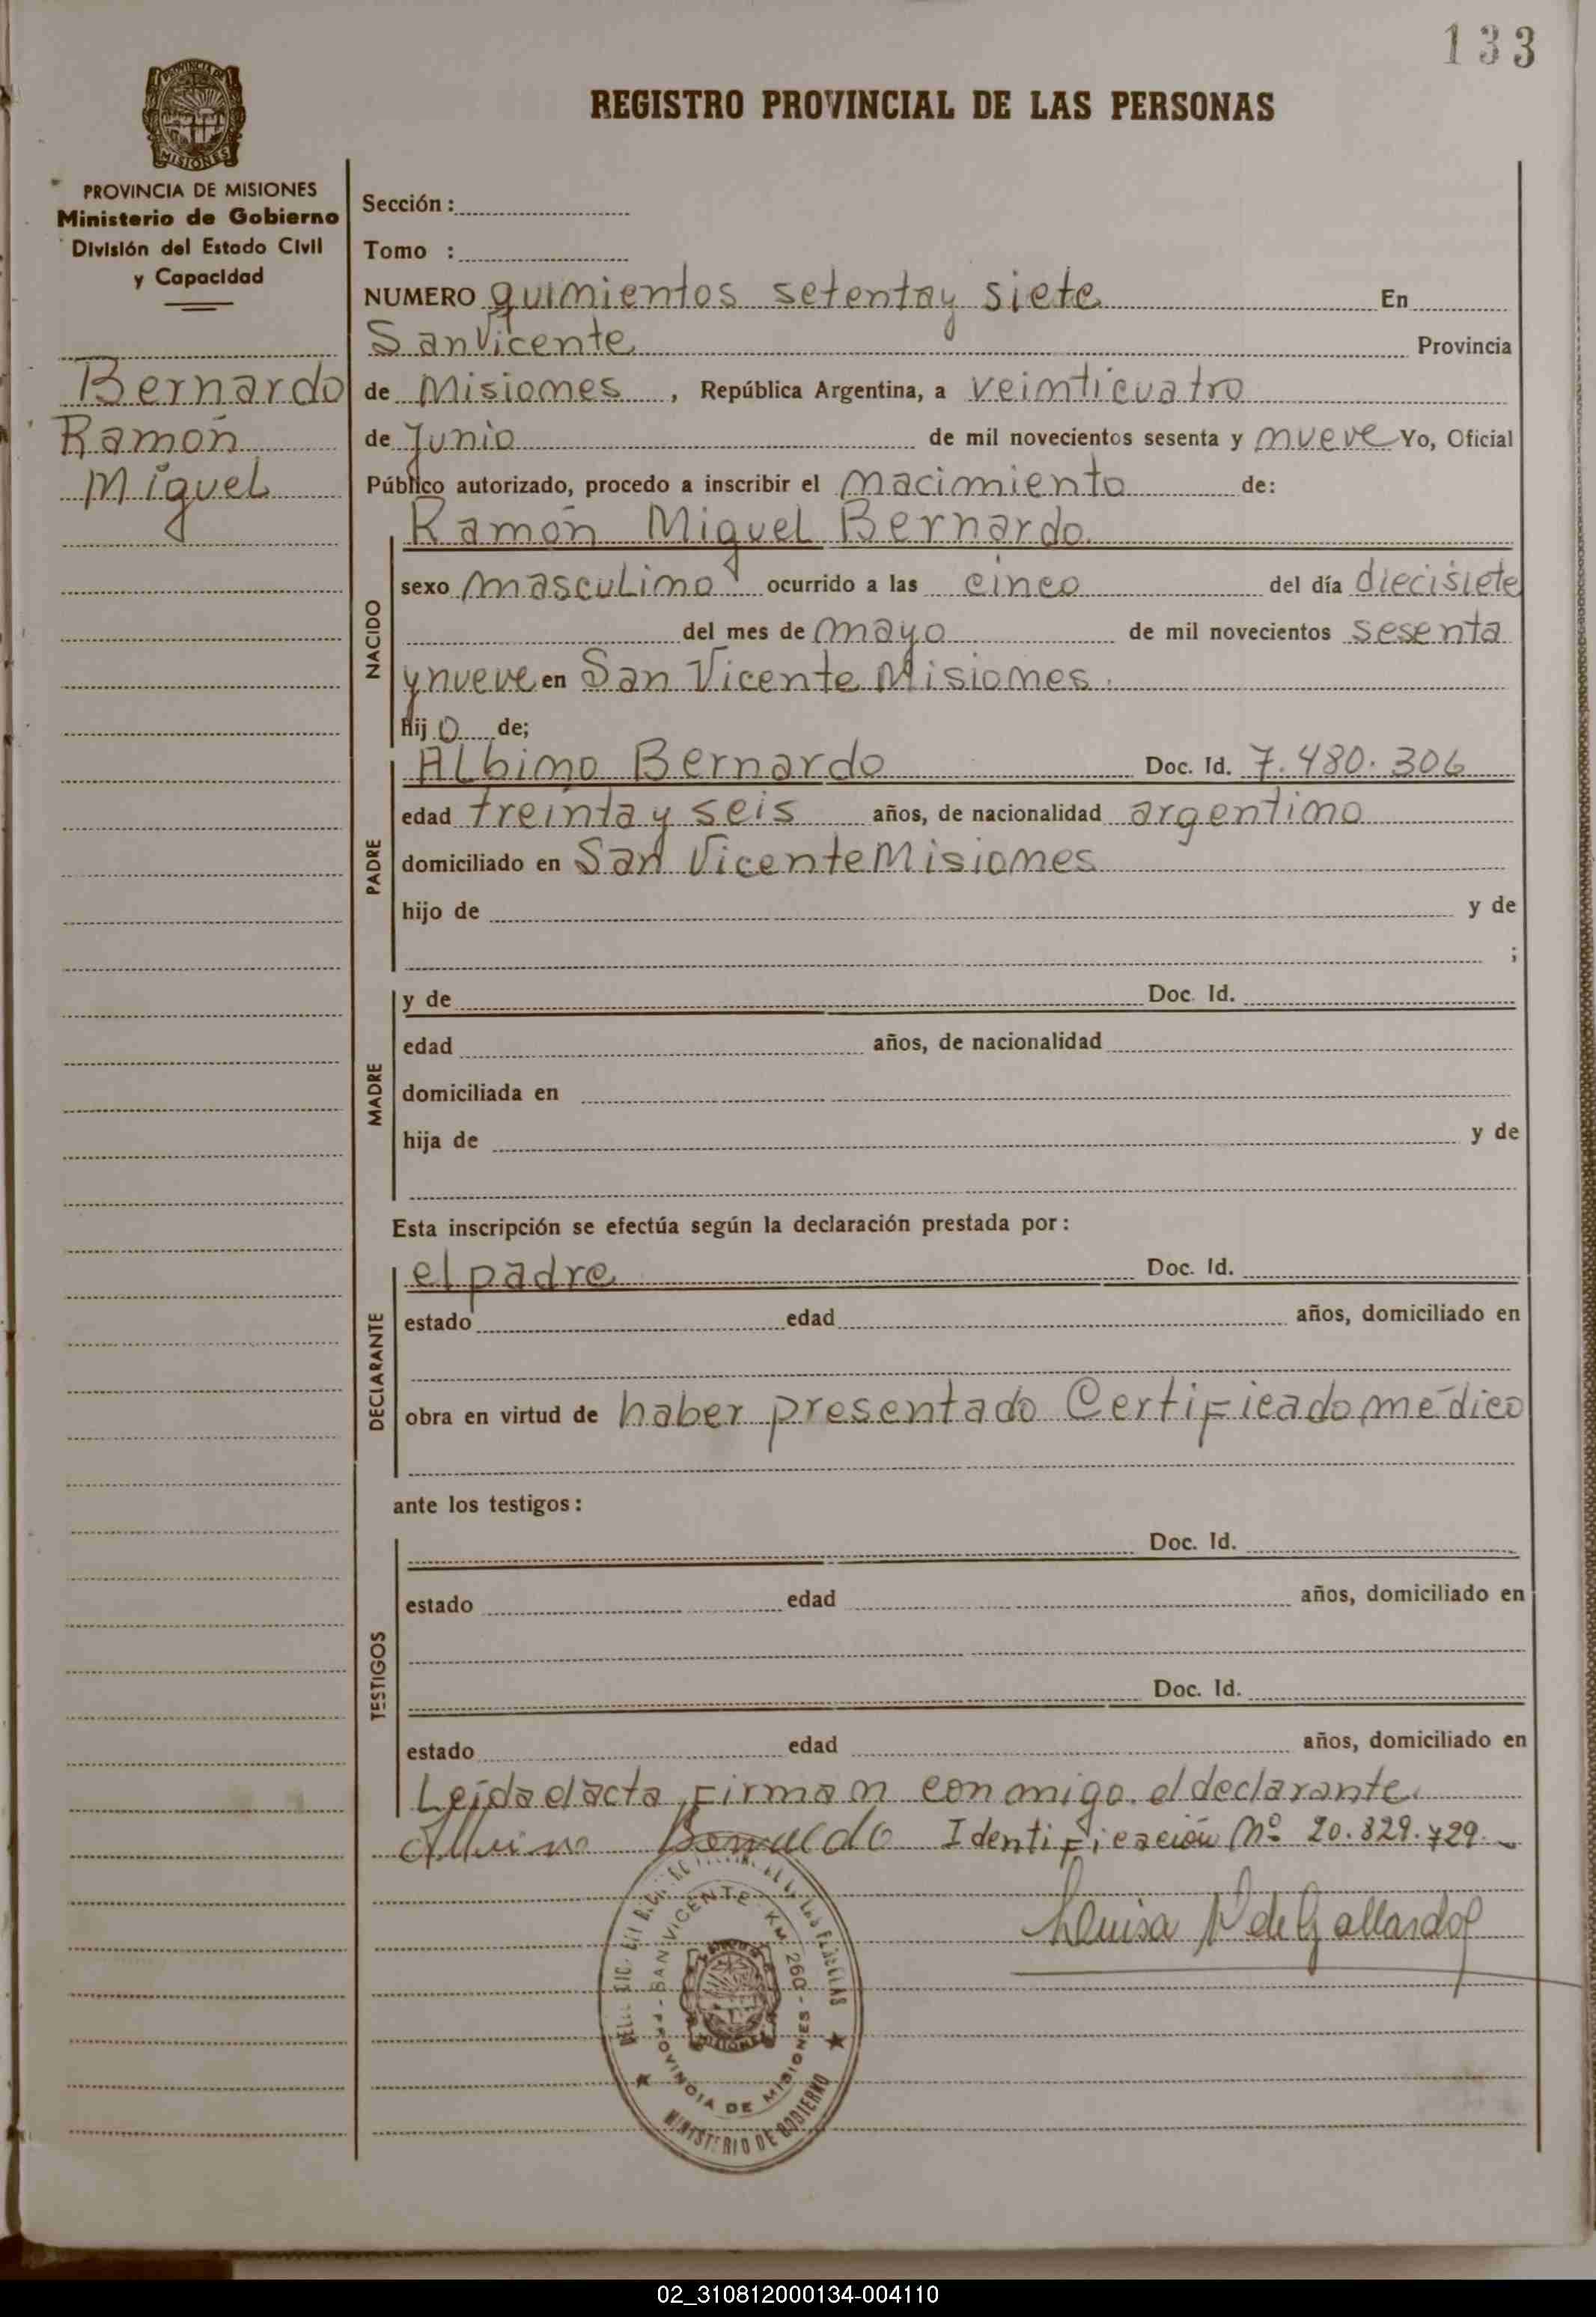 133
PROVINCIA DE
MISIONES
REGISTRO PROVINCIAL DE LAS PERSONAS
PROVINCIA DE MISIONES
Ministerio de Gobierno
División del Estado Civil
y Capacidad
Bernardo
Ramón
Miguel
Sección :
Tomo :
NUMERO quinientos setentay siete En
San Vicente Provincia
de Misiones , República Argentina, a veinticuatro
de Junio de mil novecientos sesenta y nueve Yo, Oficial
Público autorizado, procedo a inscribir el nacimiento de:
Ramón Miguel Bernardo.
NACIDO
sexo masculino ocurrido a las cinco del día diecisiete
del mes de mayo de mil novecientos sesenta
y nueve en San Vicente Misiones.
hijo de;
PADRE
Albino Bernardo Doc. Id. 7.480.306
edad treinta y seis años, de nacionalidad argentino
domiciliado en San Vicente Misiones
hijo de y de
;
MADRE
y de Doc. Id.
edad años, de nacionalidad
domiciliada en
hija de y de
Esta inscripción se efectúa según la declaración prestada por :
DECLARANTE
el padre Doc. Id.
estado edad años, domiciliado en
obra en virtud de haber presentado Certificado médico
ante los testigos :
TESTIGOS
Doc. Id.
estado edad años, domiciliado en
Doc. Id.
estado edad años, domiciliado en
Leída el acta, firman conmigo el declarante.
Albino Bernardo Identificación Nº 20.829.729.
Luisa de Gallardo
SAN VICENTE - KM 260 - PROVINCIA DE MISIONES
MINISTERIO DE GOBIERNO
02_310812000134-004110